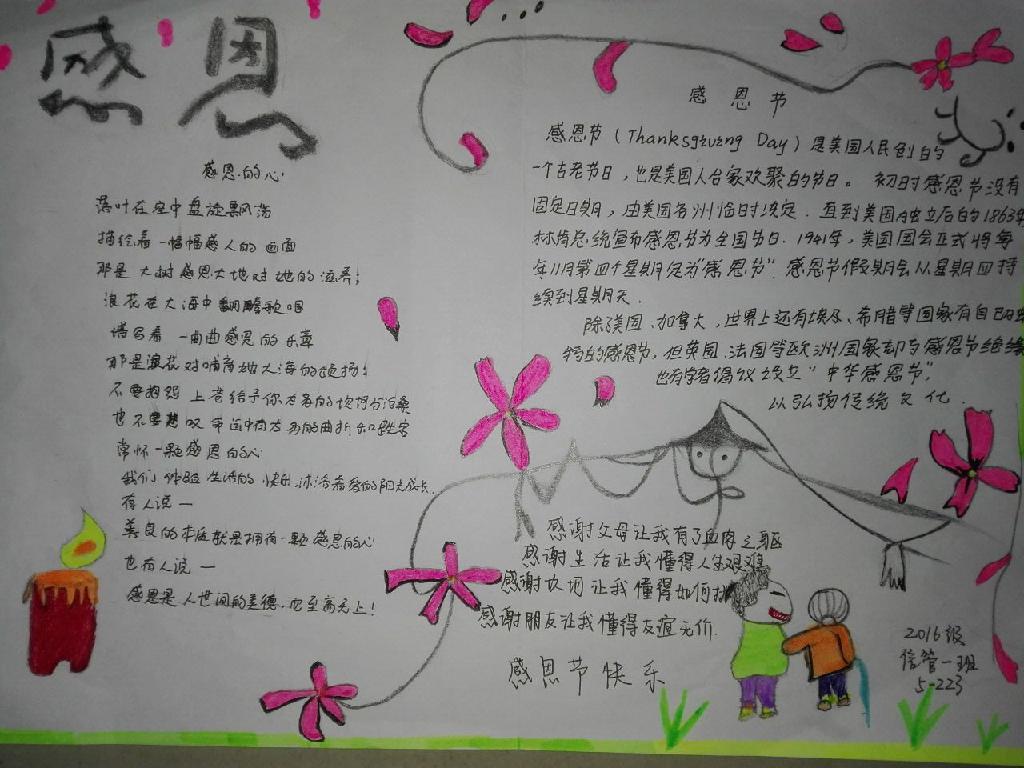 感恩
感恩的心
落叶在空中盘旋飘荡
描绘着一幅幅感人的画面
那是大树感恩大地对她的滋养；
浪花在大海中翻腾歌唱
谱写着一曲曲感恩的乐章
那是浪花对哺育她大海的
不要
也不要
常怀一颗感恩的心
我们体验生活的快乐
有人说一
善良的本质就是拥有一颗感恩的心
也有人说一
感恩是人世间的美德，它至高无上！
感恩节
感恩节（Thanksgivung Day）是美国人民创的
一个古老节日，也是美国人合家欢聚的节日。初时感恩节没有
固定日期，由美国各洲临时决定．直到美国独立后的1863年
林肯总统宣布感恩节为全国节日．1941年，美国国会正式将每
年11月第四个星期四定为"感恩节"．感恩节假期会从星期四持
续到星期天．
除美国、加拿大，世界上还有埃及、希腊等国家有自己
的感恩节，但英国、法国等欧洲国家却与感恩节绝缘
也有学者倡议设立"中华感恩节"，
以弘扬传统文化．
感谢父母让我有了血肉之躯
感谢生活让我懂得人生艰难
感谢让我懂得如何
感谢朋友让我懂得友谊无价．
感恩节快乐
2016级
信管一班
5-223